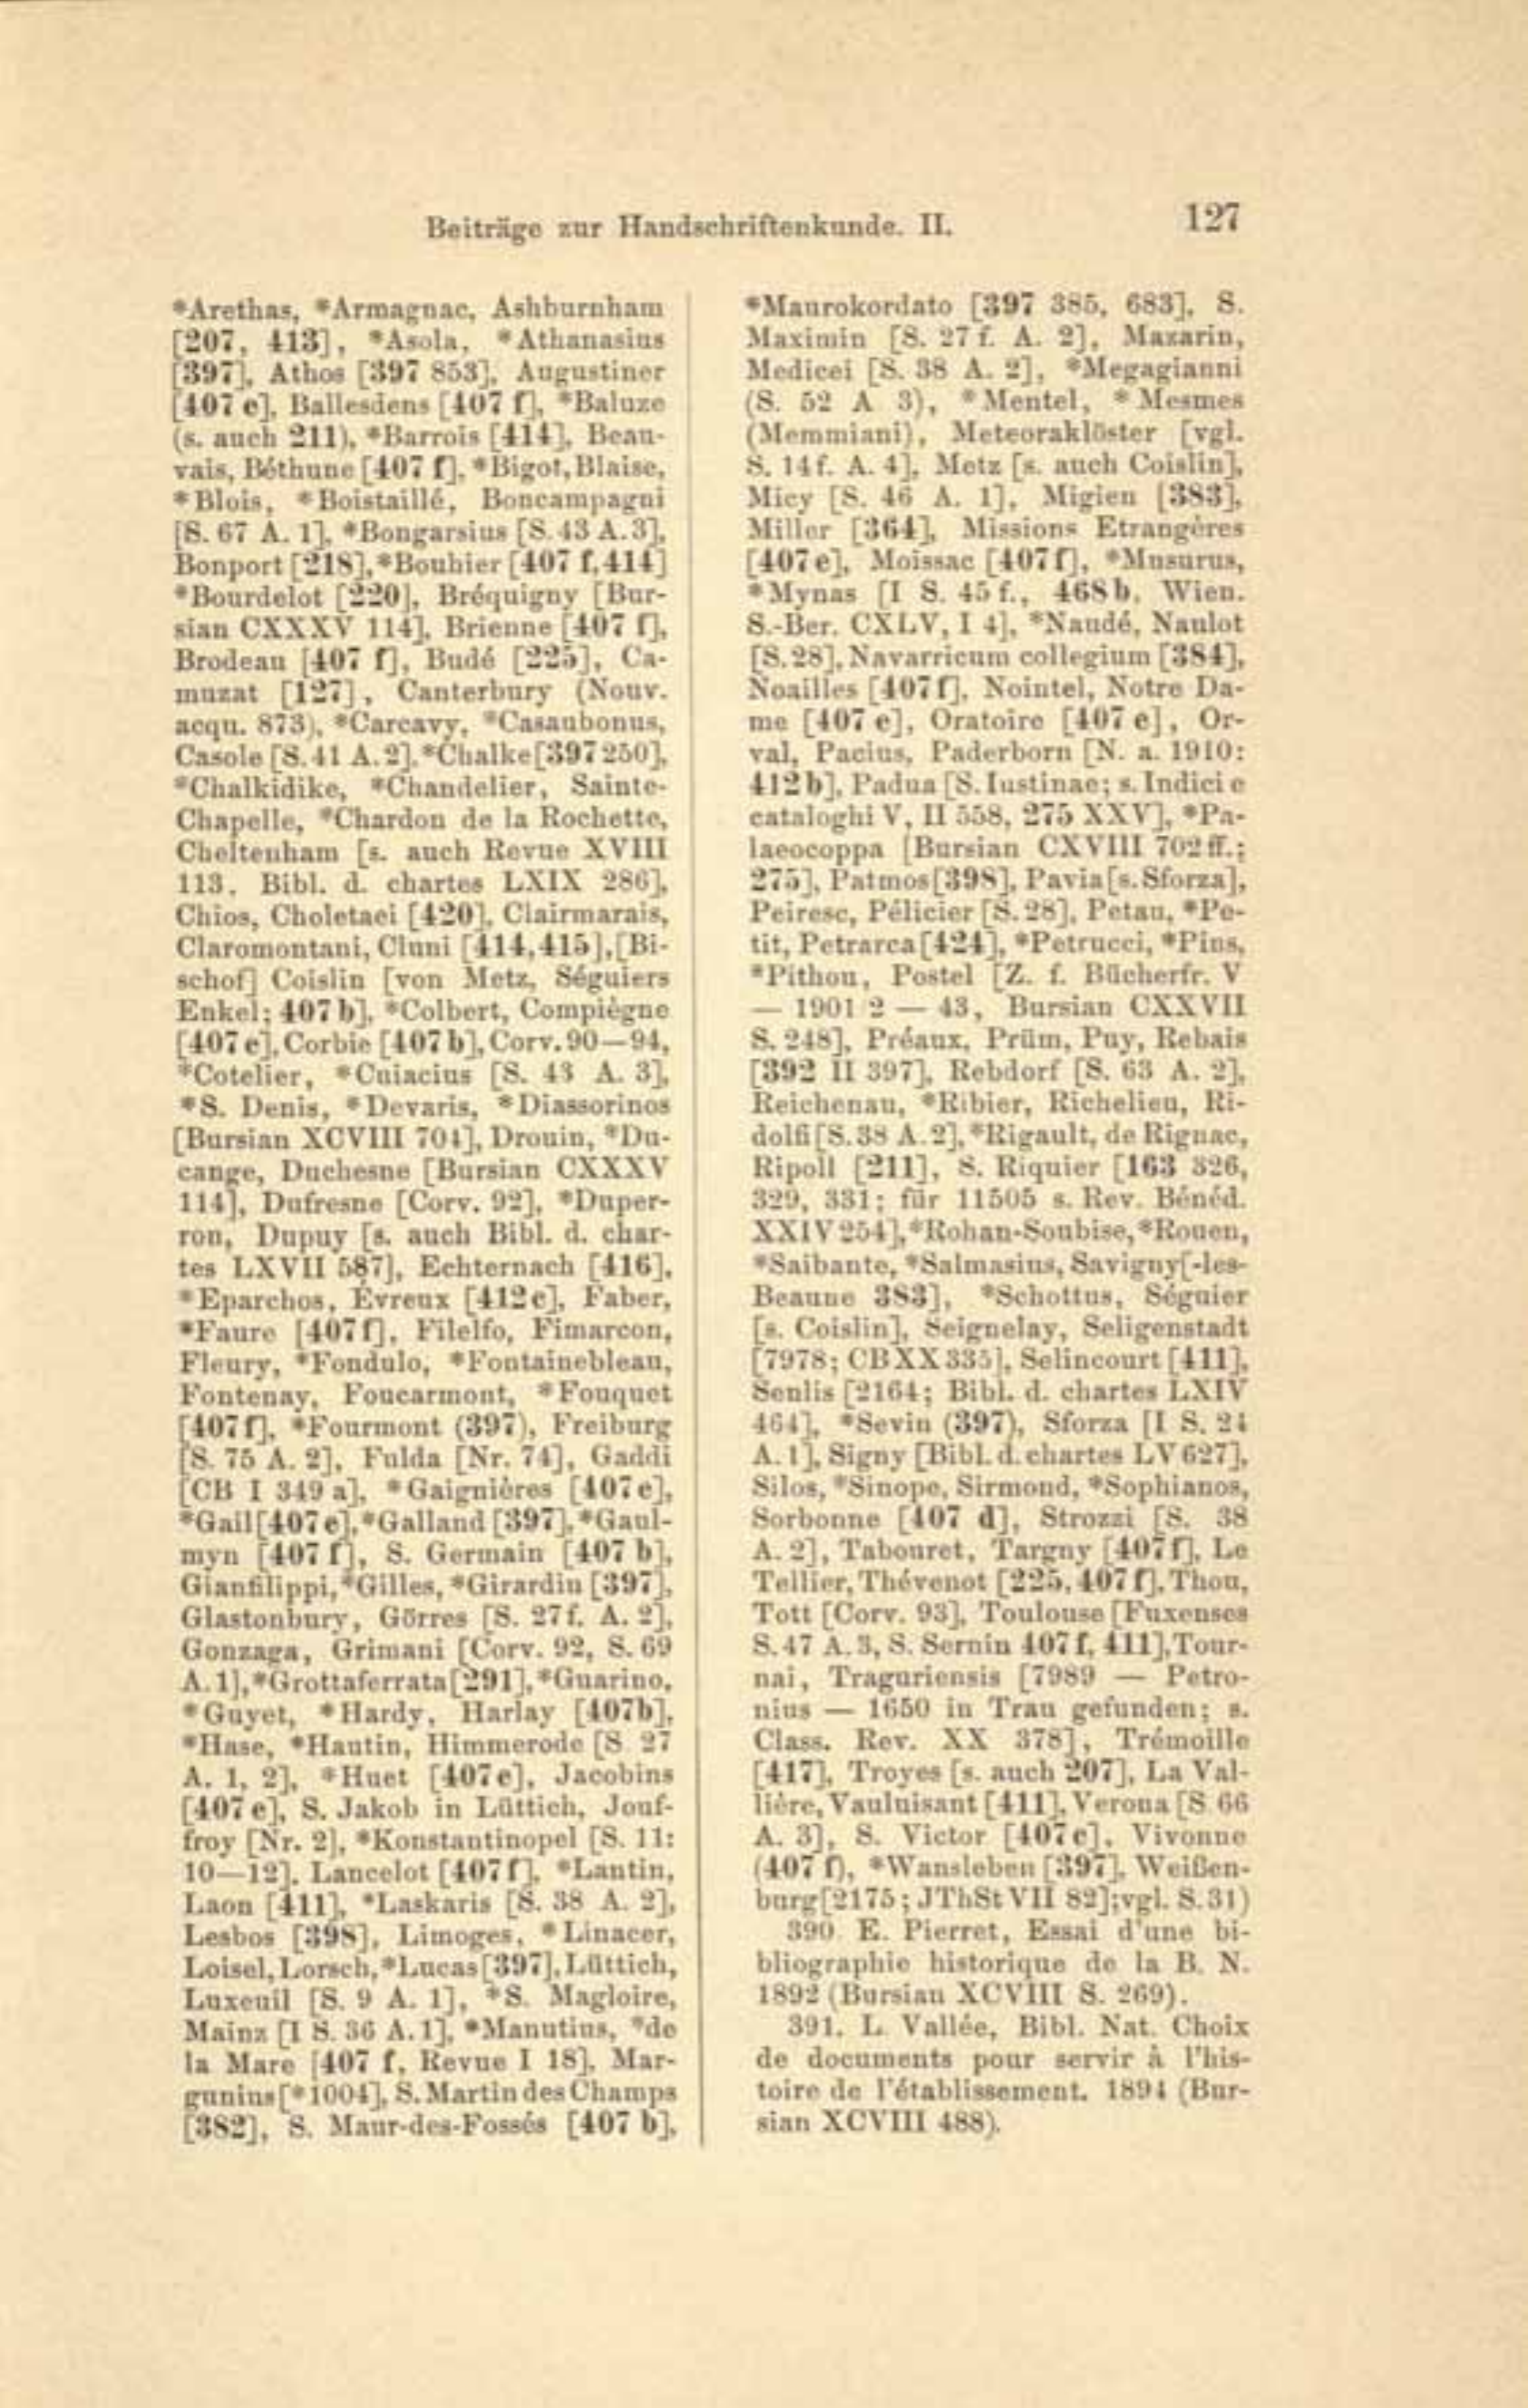 Beiträge zur Handschriftenkunde. II. 127
*Arethas, *Armagnac, Ashburnham
[207, 413], *Asola, *Athanasius
[397], Athos [397 853], Augustiner
[407 e], Ballesdens [407 f], *Baluze
(s. auch 211), *Barrois [414], Beau-
vais, Béthune [407 f], *Bigot, Blaise,
*Blois, *Boistaillé, Boncampagni
[S. 67 A. 1], *Bongarsius [S. 43 A. 3],
Bonport [218], *Bouhier [407 f, 414]
*Bourdelot [220], Bréquigny [Bur-
sian CXXXV 114], Brienne [407 f],
Brodeau [407 f], Budé [225], Ca-
muzat [127], Canterbury (Nouv.
acqu. 873), *Carcavy, *Casaubonus,
Casole [S. 41 A. 2], *Chalke [397 250],
*Chalkidike, *Chandelier, Sainte-
Chapelle, *Chardon de la Rochette,
Cheltenham [s. auch Revue XVIII
113, Bibl. d. chartes LXIX 286],
Chios, Choletaei [420], Clairmarais,
Claromontani, Cluni [414, 415], [Bi-
schof] Coislin [von Metz, Séguiers
Enkel; 407 b], *Colbert, Compiègne
[407 e], Corbie [407 b], Corv. 90—94,
*Cotelier, *Cuiacius [S. 43 A. 3],
*S. Denis, *Devaris, *Diassorinos
[Bursian XCVIII 704], Drouin, *Du-
cange, Duchesne [Bursian CXXXV
114], Dufresne [Corv. 92], *Duper-
ron, Dupuy [s. auch Bibl. d. char-
tes LXVII 587], Echternach [416],
*Eparchos, Évreux [412 c], Faber,
*Faure [407 f], Filelfo, Fimarcon,
Fleury, *Fondulo, *Fontainebleau,
Fontenay, Foucarmont, *Fouquet
[407 f], *Fourmont (397), Freiburg
[S. 75 A. 2], Fulda [Nr. 74], Gaddi
[CB I 349 a], *Gaignières [407 e],
*Gail [407 e], *Galland [397], *Gaul-
myn [407 f], S. Germain [407 b],
Gianfilippi, *Gilles, *Girardin [397],
Glastonbury, Görres [S. 27 f. A. 2],
Gonzaga, Grimani [Corv. 92, S. 69
A. 1], *Grottaferrata [291], *Guarino,
*Guyet, *Hardy, Harlay [407b],
*Hase, *Hautin, Himmerode [S 27
A. 1, 2], *Huet [407 e], Jacobins
[407 e], S. Jakob in Lüttich, Jouf-
froy [Nr. 2], *Konstantinopel [S. 11:
10—12], Lancelot [407 f], *Lantin,
Laon [411], *Laskaris [S. 38 A. 2],
Lesbos [398], Limoges, *Linacer,
Loisel, Lorsch, *Lucas [397], Lüttich,
Luxeuil [S. 9 A. 1], *S. Magloire,
Mainz [I S. 36 A. 1], *Manutius, *de
la Mare [407 f, Revue I 18], Mar-
gunius [*1004], S. Martin des Champs
[382], S. Maur-des-Fossés [407 b],
*Maurokordato [397 385, 683], S.
Maximin [S. 27 f. A. 2], Mazarin,
Medicei [S. 38 A. 2], *Megagianni
(S. 52 A 3), *Mentel, *Mesmes
(Memmiani), Meteoraklöster [vgl.
S. 14 f. A. 4], Metz [s. auch Coislin],
Micy [S. 46 A. 1], Migieu [383],
Miller [364], Missions Etrangères
[407 e], Moissac [407 f], *Musurus,
*Mynas [I S. 45 f., 468 b, Wien.
S.-Ber. CXLV, I 4], *Naudé, Naulot
[S. 28], Navarricum collegium [384],
Noailles [407 f], Nointel, Notre Da-
me [407 e], Oratoire [407 e], Or-
val, Pacius, Paderborn [N. a. 1910:
412 b], Padua [S. Iustinae; s. Indici e
cataloghi V, II 558, 275 XXV], *Pa-
laeocoppa [Bursian CXVIII 702 ff.;
275], Patmos [398], Pavia [s. Sforza],
Peiresc, Pélicier [S. 28], Petau, *Pe-
tit, Petrarca [424], *Petrucci, *Pins,
*Pithou, Postel [Z. f. Bücherfr. V
— 1901/2 — 43, Bursian CXXVII
S. 248], Préaux, Prüm, Puy, Rebais
[392 II 397], Rebdorf [S. 63 A. 2],
Reichenau, *Ribier, Richelieu, Ri-
dolfi [S. 38 A. 2], *Rigault, de Rignac,
Ripoll [211], S. Riquier [163 326,
329, 331; für 11505 s. Rev. Bénéd.
XXIV 254], *Rohan-Soubise, *Rouen,
*Saibante, *Salmasius, Savigny[-les-
Beaune 383], *Schottus, Séguier
[s. Coislin], Seignelay, Seligenstadt
[7978; CB XX 335], Selincourt [411],
Senlis [2164; Bibl. d. chartes LXIV
464], *Sevin (397), Sforza [I S. 24
A. 1], Signy [Bibl. d. chartes LV 627],
Silos, *Sinope, Sirmond, *Sophianos,
Sorbonne [407 d], Strozzi [S. 38
A. 2], Tabouret, Targny [407 f], Le
Tellier, Thévenot [225, 407 f], Thou,
Tott [Corv. 93], Toulouse [Fuxenses
S. 47 A. 3, S. Sernin 407 f, 411], Tour-
nai, Traguriensis [7989 — Petro-
nius — 1650 in Trau gefunden; s.
Class. Rev. XX 378], Trémoille
[417], Troyes [s. auch 207], La Val-
lière, Vauluisant [411], Verona [S. 66
A. 3], S. Victor [407 c], Vivonne
(407 f), *Wansleben [397], Weißen-
burg [2175; JThSt VII 82]; vgl. S. 31)
390. E. Pierret, Essai d'une bi-
bliographie historique de la B. N.
1892 (Bursian XCVIII S. 269).
391. L. Vallée, Bibl. Nat. Choix
de documents pour servir à l'his-
toire de l'établissement. 1894 (Bur-
sian XCVIII 488).